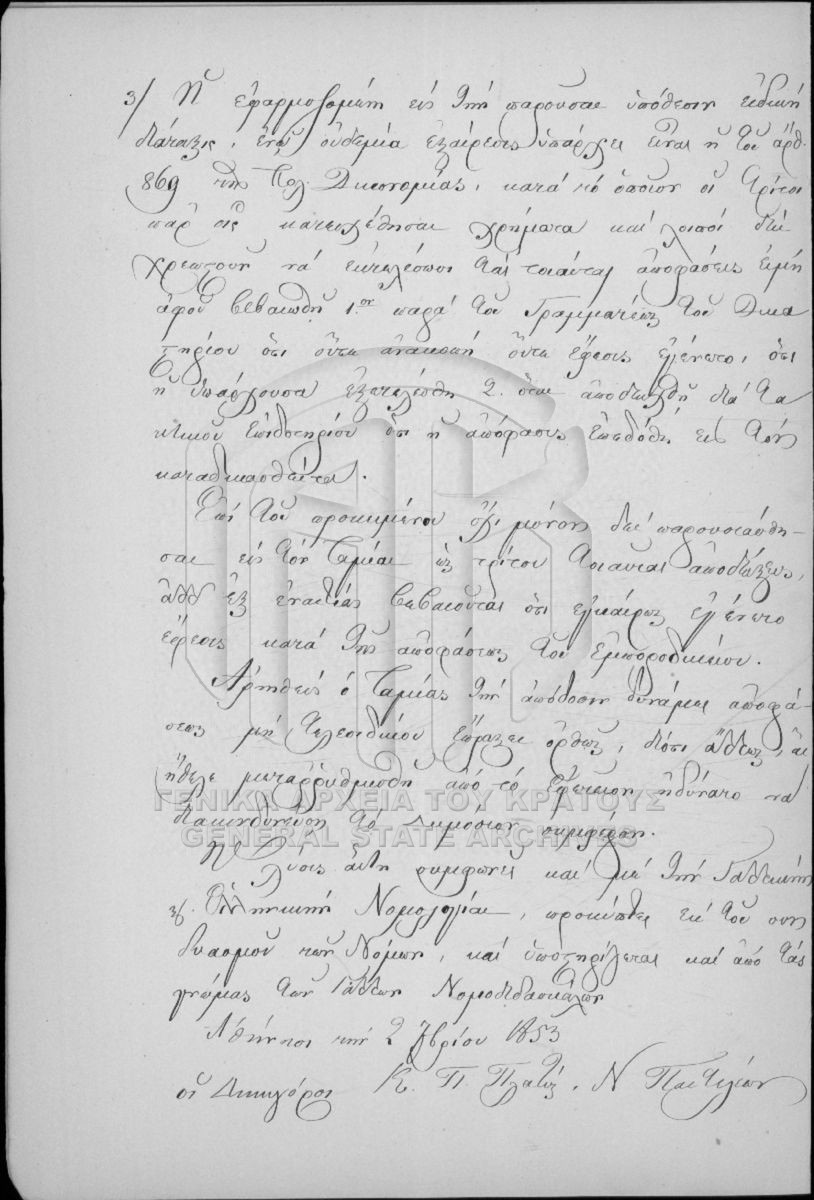 3/ Ἡ ἐφαρμοζομένη εἰς τὴν παροῦσαν ὑπόθεσιν εἰδικὴ
διάταξις, ἐνῷ οὐδεμία ἐξαίρεσις ὑπάρχει εἶναι ἡ τοῦ ἄρθ.
869 τῆς Πολ. Δικονομίας, κατὰ τὸ ὁποῖον οἱ τρίτοι
παρ' οἷς κατεσχέθησαν χρήματα καὶ λοιπὰ δὲν
χρεωστοῦν νὰ ἐκτελέσωσι τὰς τοιαύτας ἀποφάσεις εἰμὴ
ἀφοῦ βεβαιωθῇ 1.ον παρὰ τοῦ Γραμματέως τοῦ Δικα
στηρίου ὅτι οὔτε ἀνακοπὴ οὔτε ἔφεσις ἐγένετο, ὅτι
ἡ ὑπάρχουσα ἐξετελέσθη 2. ὅταν ἀποδειχθῇ διὰ τα
κτικοῦ ἐπιδοτηρίου ὅτι ἡ ἀπόφασις ἐπεδόθη εἰς τὸν
καταδικασθέντα.
Ἐπὶ τοῦ προκειμένου ὄχι μόνον δὲν παρουσιάσθη-
σαν εἰς τὸν Ταμίαν ὡς τρίτον τοιαῦται ἀποδείξεις,
ἀλλ' ἐξ ἐναντίας βεβαιοῦται ὅτι ἐγκαίρως ἐγένετο
ἔφεσις κατὰ τῆς ἀποφάσεως τοῦ Ἐμποροδικείου.
Ἀρνηθεὶς ὁ Ταμίας τὴν ἀπόδοσιν δυνάμει ἀποφά-
σεως μὴ τελεσιδίκου ἔπραξεν ὀρθῶς, διότι ἄλλως, ἂν
ἤθελε μεταρρυθμισθῆ ἀπὸ τὸ Ἐφετεῖον ἠδύνατο νὰ
διακινδυνεύσῃ τὸ Δημόσιον συμφέρον.
Ἡ λύσις αὕτη συμφωνεῖ καὶ μὲ τὴν Γαλλικὴν
καὶ Ἑλληνικὴν Νομολογίαν, προκύπτει ἐκ τοῦ συν
δυασμοῦ τῶν Νόμων, καὶ ὑποστηρίζεται καὶ ἀπὸ τὰς
γνώμας τῶν Γάλλων Νομοδιδασκάλων
Ἀθήνησι τὴν 2 βρίου 1853
οἱ Δικηγόροι Κ. Π. Ν
ΓΕΝΙΚΑ ΑΡΧΕΙΑ ΤΟΥ ΚΡΑΤΟΥΣ
GENERAL STATE ARCHIVES